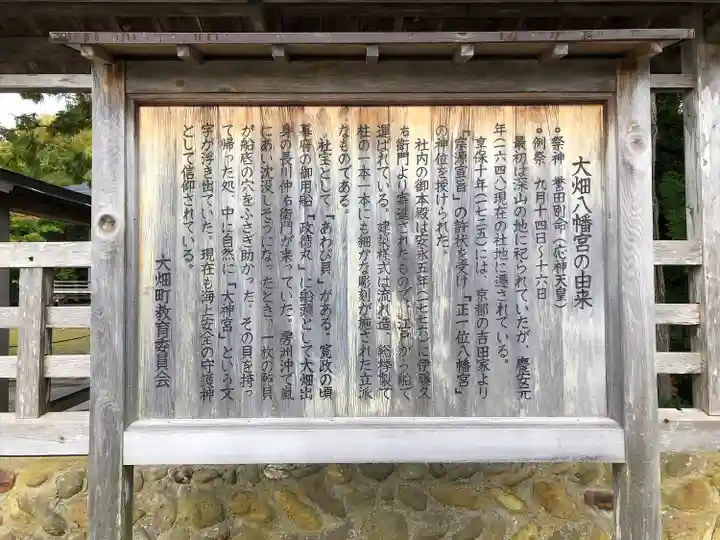 大畑八幡宮の由来
○祭神 誉田別命(応神天皇)
○例祭 九月十四日~十六日
最初は深山の地に祀られていたが、慶安元
年(一六四八)現在の社地に遷されている。
享保十年(一七二五)には、京都の吉田家より
『宗源宣旨』の許状を受け『正一位八幡宮』
の神位を授けられた。
社内の御本殿は安永五年(一七七六)に伊藤久
右衛門より寄進されたもので、江戸から船で
運ばれている。建築様式は流れ造、総欅製で
柱の一本一本にも細かな彫刻が施された立派
なものである。
社宝として『あわび貝』がある。寛政の頃
幕府の御用船『政徳丸』に船頭として大畑出
身の長川仲右衛門が乗っていた。房州沖で嵐
にあい沈没しそうになったとき、一枚の鮑貝
が船底の穴をふさぎ助かった。その貝を持っ
て帰った処、中に自然に『大神宮』という文
字が浮き出ていた。現在も海上安全の守護神
として信仰されている。
大畑町教育委員会